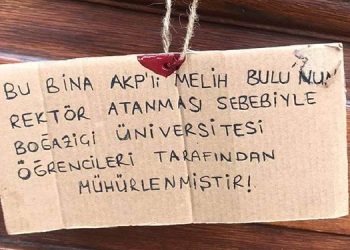 BU BİNA AKP'li MELİH BULU'NUN
REKTÖR ATANMASI SEBEBİYLE
BOĞAZİÇİ ÜNİVERSİTESİ
ÖĞRENCİLERİ TARAFINDAN
MÜHÜRLENMİŞTİR!